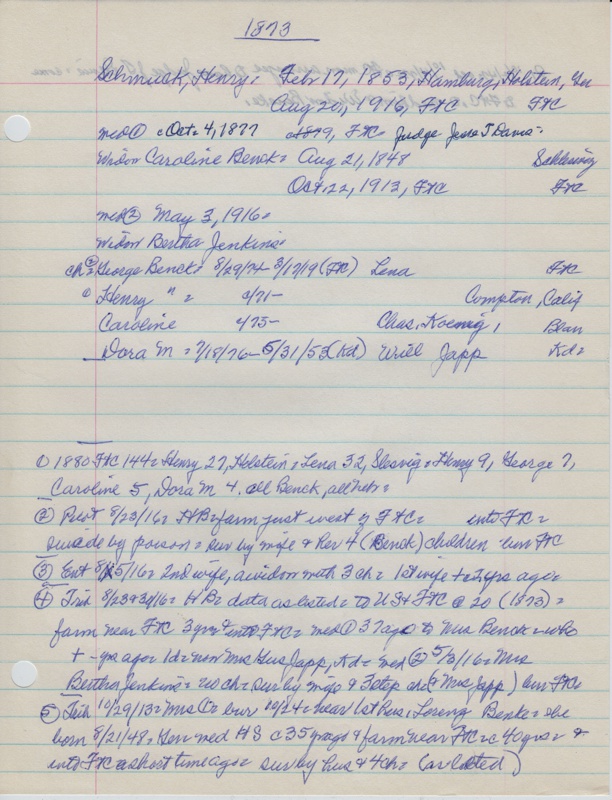 1873
Schmuck, Henry= Feb 17, 1853, Hamburg, Holstein, Ger
Aug 20, 1916, FtC FtC
med① cOct 4, 1877 c1879, FtC= Judge Jesse T Davis=
Widow Caroline Benck= Aug 21, 1848 Schleswig
Oct 22, 1913, FtC FtC
med② May 3, 1916=
Widow Bertha Jenkins=
ch②= George Benck= 8/29/74- 3/17/19 (FtC) Lena FtC
① Henry " = c/71- Compton, Calif
Caroline c/75- Chas. Koenig, Blair
Dora M= 7/18/76- 5/31/53 (Kd) Japp Kd=
① 1880 FtC 144= Henry 27, Holstein= Lena 32, Slesvig= Henry 9, George 7,
Caroline 5, Dora M 4. all Benck, all Neb=
② Pilot 8/23/16= HB= farm just west of FtC= into FtC=
suicide by poison= sur by wife & her 4 (Benck) children bur FtC
③ Ent 8/25/16= 2nd wife, a widow with 3 ch= 1st wife + yrs ago=
④ Trib 8/23&30/16= HB= data as listed= to US & FtC @ 20 (1873)=
farm near FtC 3 yrs & into FtC= med① 37 ago to Mrs Benck= who
+ - yrs ago= 1d= now Mrs Gus Japp, Kd= med② 5/3/16= Mrs
Bertha Jenkins= no ch= sur by wife & 3 step ch (& Mrs Japp) bur FtC
⑤ Trib 10/29/13= Mrs C= bur 10/24= near 1st hus= Lorenz Benk= she
born 8/21/48= Ger= med HS c35 yrs ago & farm near FtC= c40 yrs= &
into FtC a short time ago= sur by hus & 4 ch= (as listed)